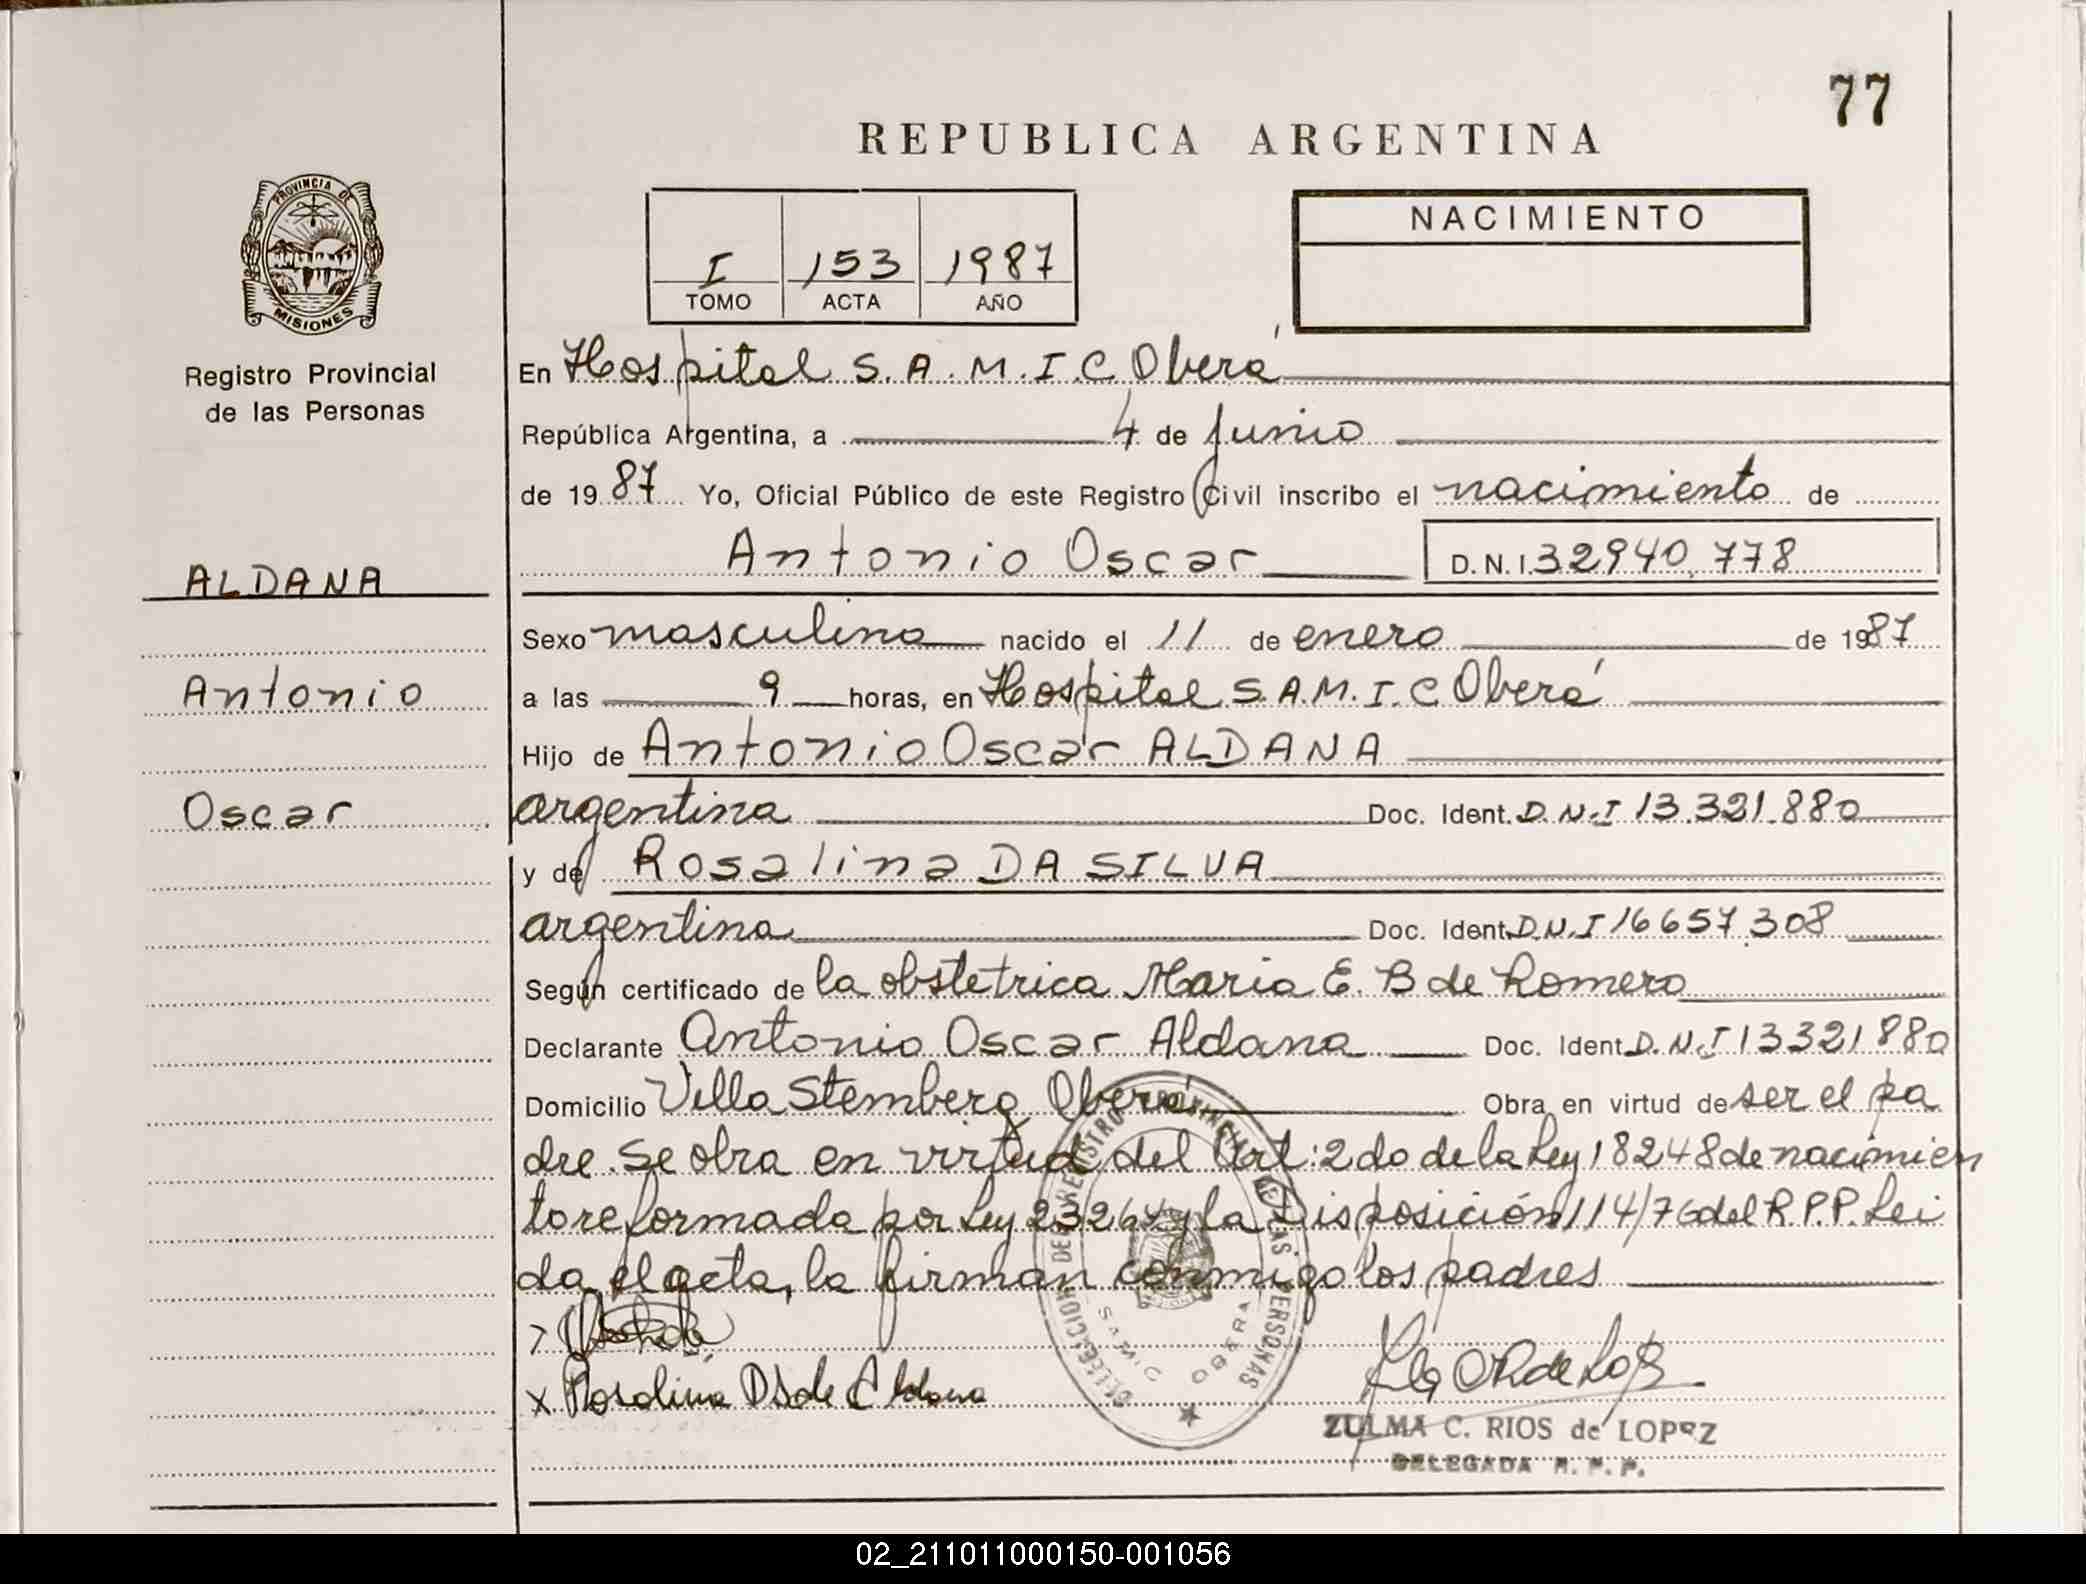 77
REPUBLICA ARGENTINA
PROVINCIA DE
MISIONES
Registro Provincial
de las Personas
I 153 1987
TOMO ACTA AÑO
NACIMIENTO
En Hospital S.A.M.I.C. Oberá
República Argentina, a 4 de junio
de 1987 Yo, Oficial Público de este Registro Civil inscribo el nacimiento de
Antonio Oscar D.N.I. 32940.778
ALDANA
Antonio
Oscar
Sexo masculino nacido el 11 de enero de 1987
a las 9 horas, en Hospital S.A.M.I.C Oberá
Hijo de Antonio Oscar ALDANA
argentina Doc. Ident. D.N.I 13.321.880
y de Rosalina DA SILVA
argentina Doc. Ident. D.N.I 16657.308
Según certificado de la obstetrica Maria E. B de Romero
Declarante Antonio Oscar Aldana Doc. Ident. D.N.I 13321880
Domicilio Villa Stemberg Oberá Obra en virtud de ser el pa
dre. Se obra en virtud del Art: 2do de la Ley 18248 de nacimien
to reformada por Ley 23264 y la Disposición 114/76 del R.P.P. Lei
da el acta, la firman conmigo los padres
x Rosalina DS de Aldana
DELEGACION DEL REGISTRO PROVINCIAL DE LAS PERSONAS
SAMIC OBERA
ZULMA C. RIOS de LOPEZ
DELEGADA R. P. P.
02_211011000150-001056